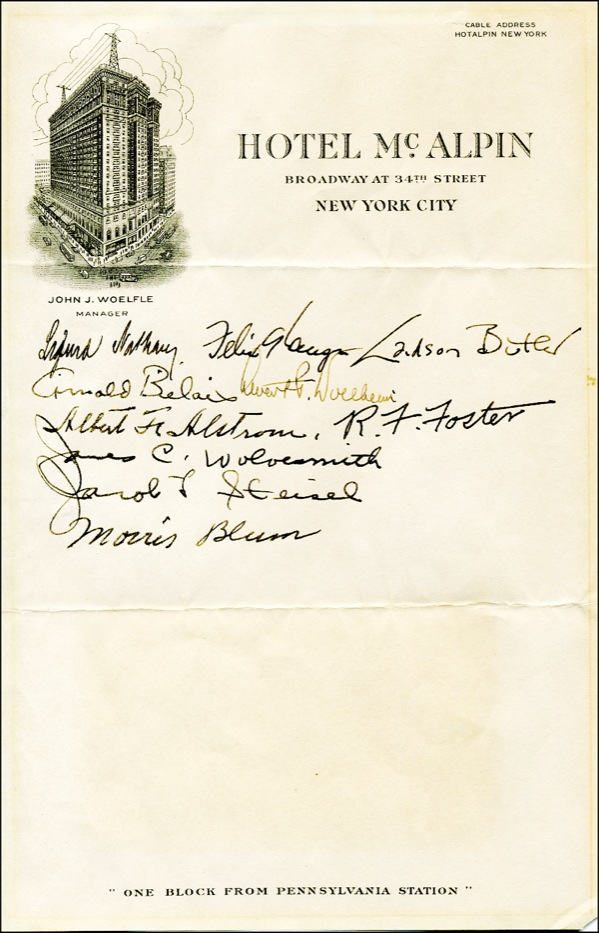 CABLE ADDRESS
HOTALPIN NEW YORK
HOTEL McALPIN
BROADWAY AT 34TH STREET
NEW YORK CITY
JOHN J. WOELFLE
MANAGER
Felix Ladson Butler
Arnold Belais
Albert F. Alstrom, R. F. Foster
James C. Wolvesmith
Jacob T Steisel
Morris Blum
" ONE BLOCK FROM PENNSYLVANIA STATION "